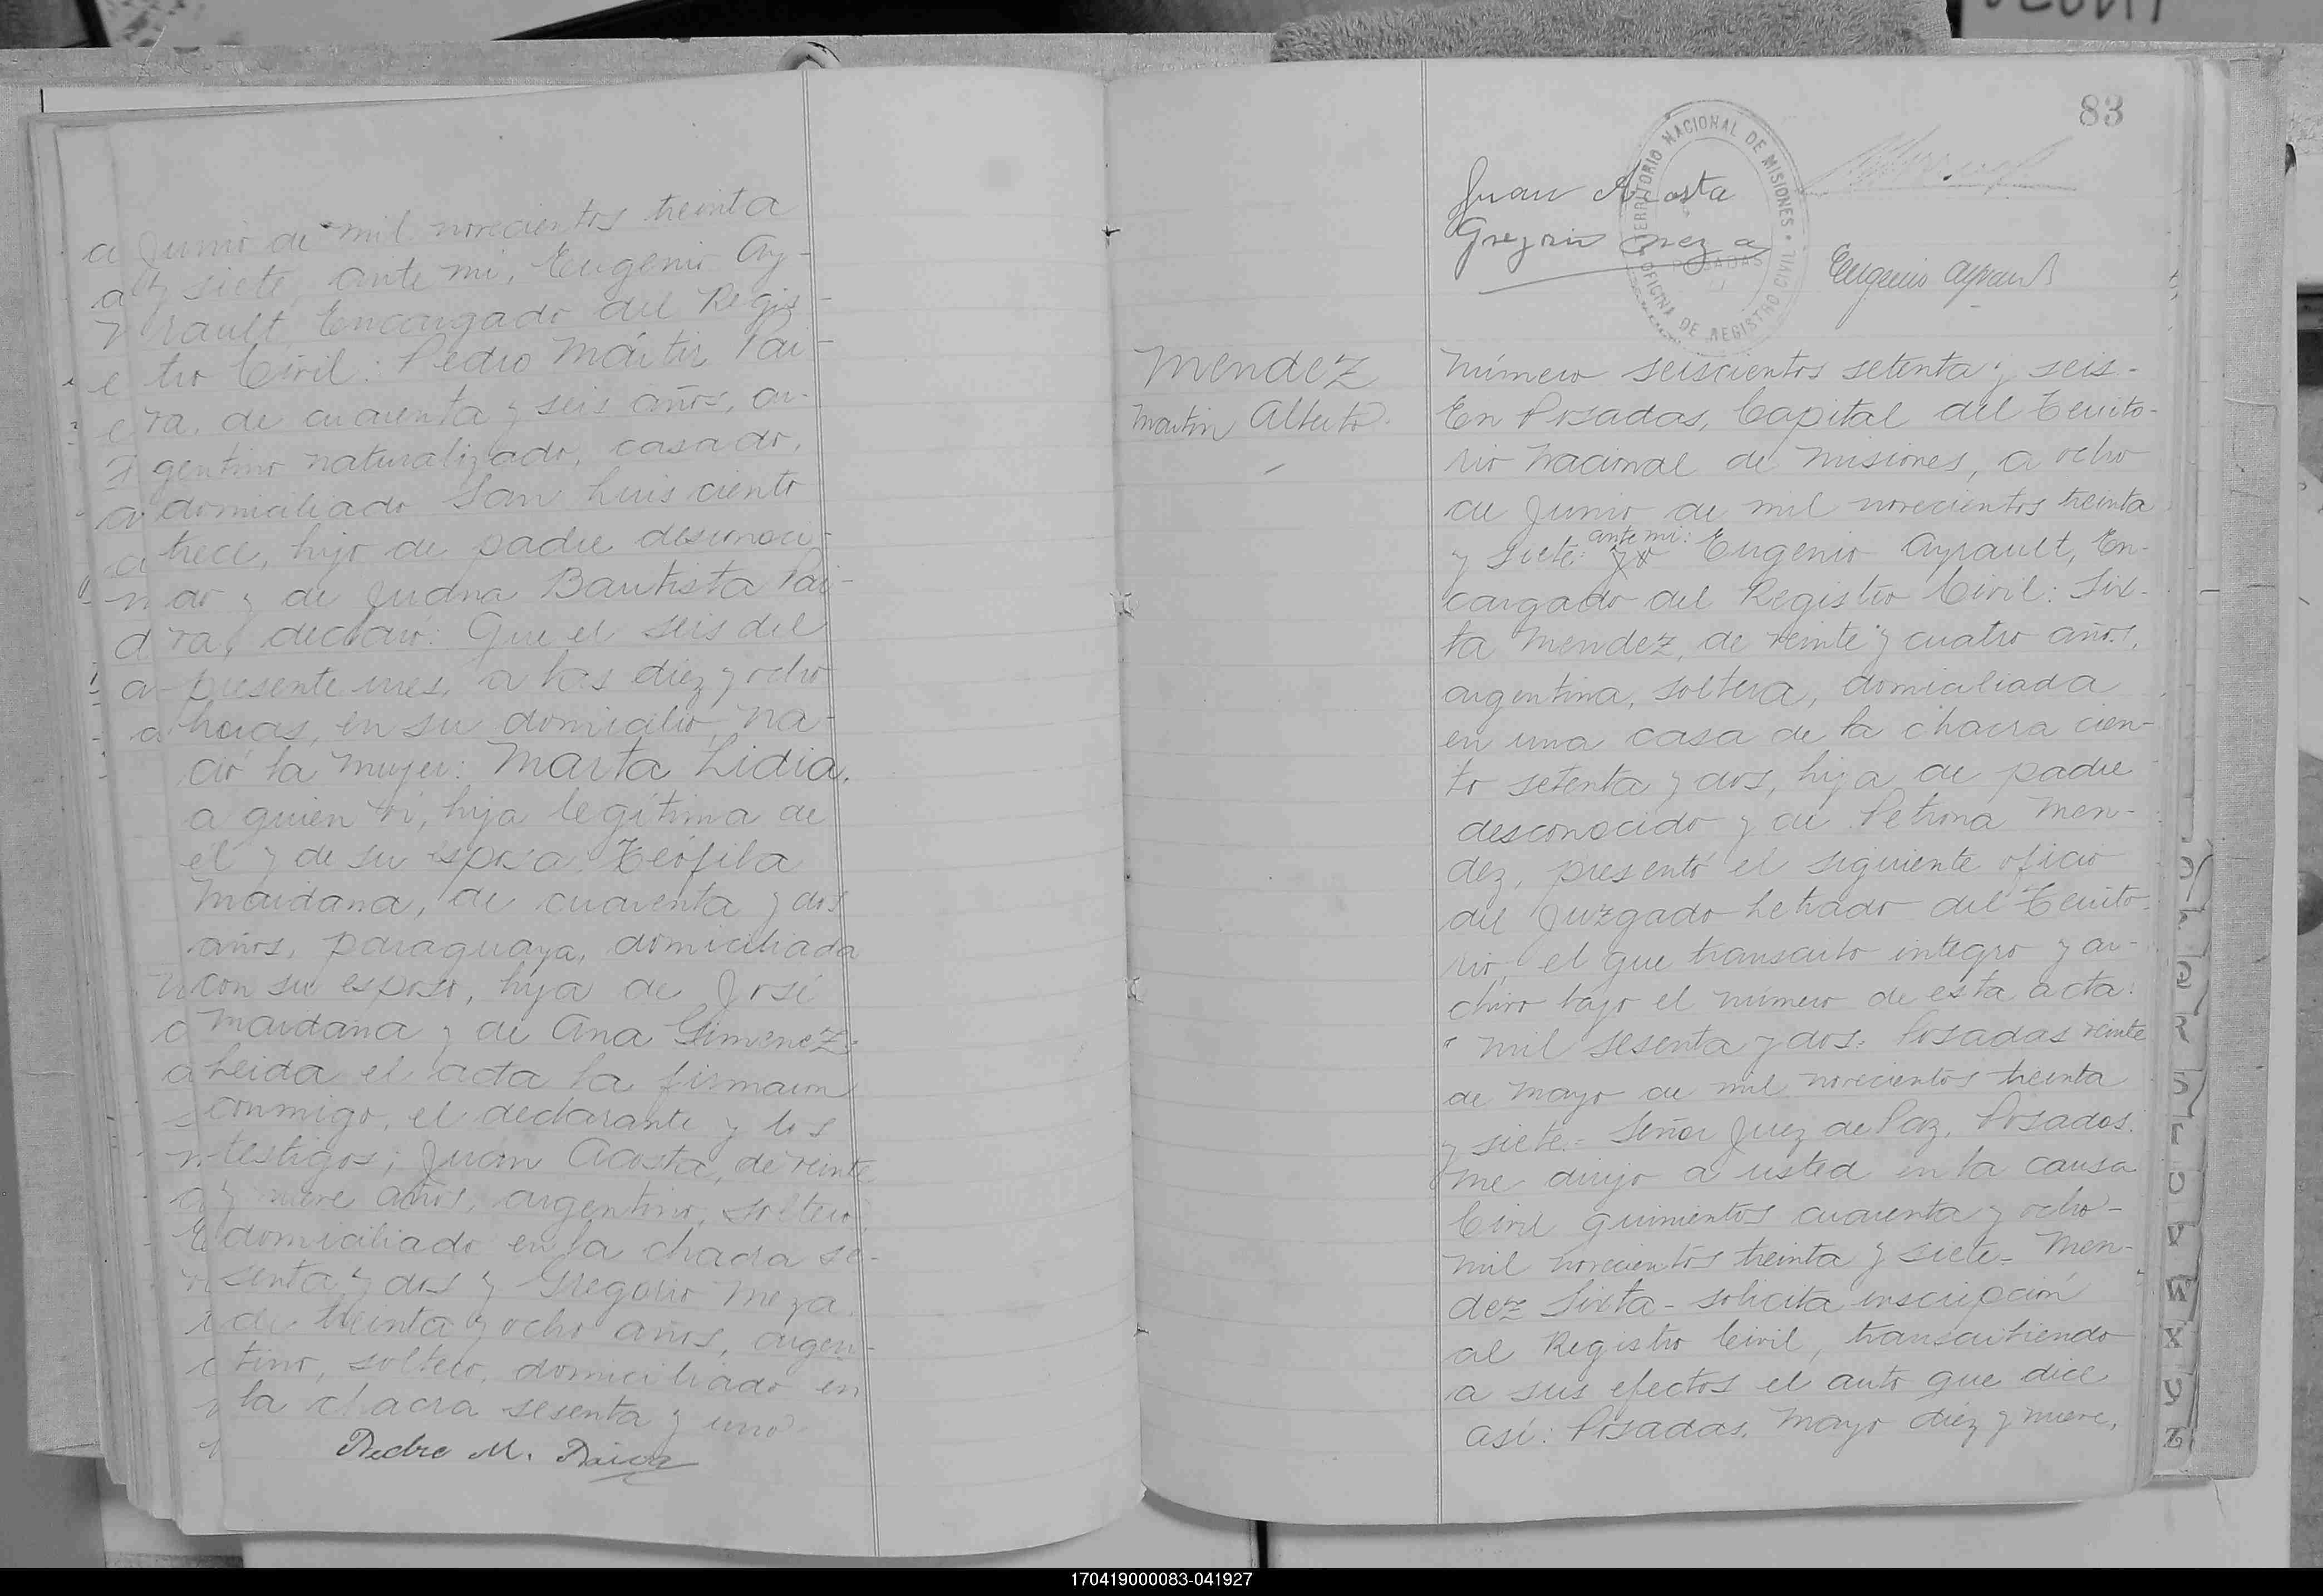 Junio de mil novecientos treinta
y siete, ante mi, Eugenio Ay-
rault, Encargado del Regis-
tro Civil: Pedro Mártir Pai-
va, de cuarenta y seis años, ar-
gentino naturalizado, casado,
domiciliado San Luis ciento
trece, hijo de padre desconoci-
do y de Juana Bautista Pai-
va, declaró: Que el seis del
presente mes, a las diez y ocho
horas, en su domicilio, na-
ció la mujer: Marta Lidia,
a quien vi, hija legítima de
él y de su esposa Teófila
Maidana, de cuarenta y dos
años, paraguaya, domiciliada
con su esposo, hija de José
Maidana y de Ana Gimenez:
Leida el acta la firmaron
conmigo, el declarante y los
testigos; Juan Acosta, de veinte
y nueve años, argentino, soltero,
domiciliado en la chacra se-
senta y dos y Gregorio Meza,
de treinta y ocho años, argen-
tino, soltero, domiciliado en
la chacra sesenta y uno
Pedro M. Paiva
83
TERRITORIO NACIONAL DE MISIONES
OFICINA DE REGISTRO CIVIL
POSADAS
Juan Acosta
Gregorio Meza
Eugenio Ayrault
Mendez
Martin Alberto.
Número seiscientos setenta y seis-
En Posadas, Capital del Territo-
rio Nacional de Misiones, a ocho
de Junio de mil novecientos treinta
y siete: yo ante mi: Eugenio Ayrault, En-
cargado del Registro Civil: Six-
ta Mendez, de veinte y cuatro años,
argentina, soltera, domiciliada
en una casa de la chacra cien-
to setenta y dos, hija de padre
desconocido y de Petrona Men-
dez, presentó el siguiente oficio
del Juzgado Letrado del Territo-
rio, el que transcribo integro y ar-
chivo bajo el número de esta acta:
" Mil sesenta y dos: Posadas veinte
de Mayo de mil novecientos treinta
y siete.= Señor Juez de Paz, Posadas.
Me dirijo a usted en la causa
Civil quinientos cuarenta y ocho-
mil novecientos treinta y siete- Men-
dez Sixta - solicita inscripción
al Registro Civil, transcribiendo
a sus efectos el auto que dice
así: Posadas, Mayo diez y nueve,
R
S
T
U
V
W
X
Y
Z
170419000083-041927